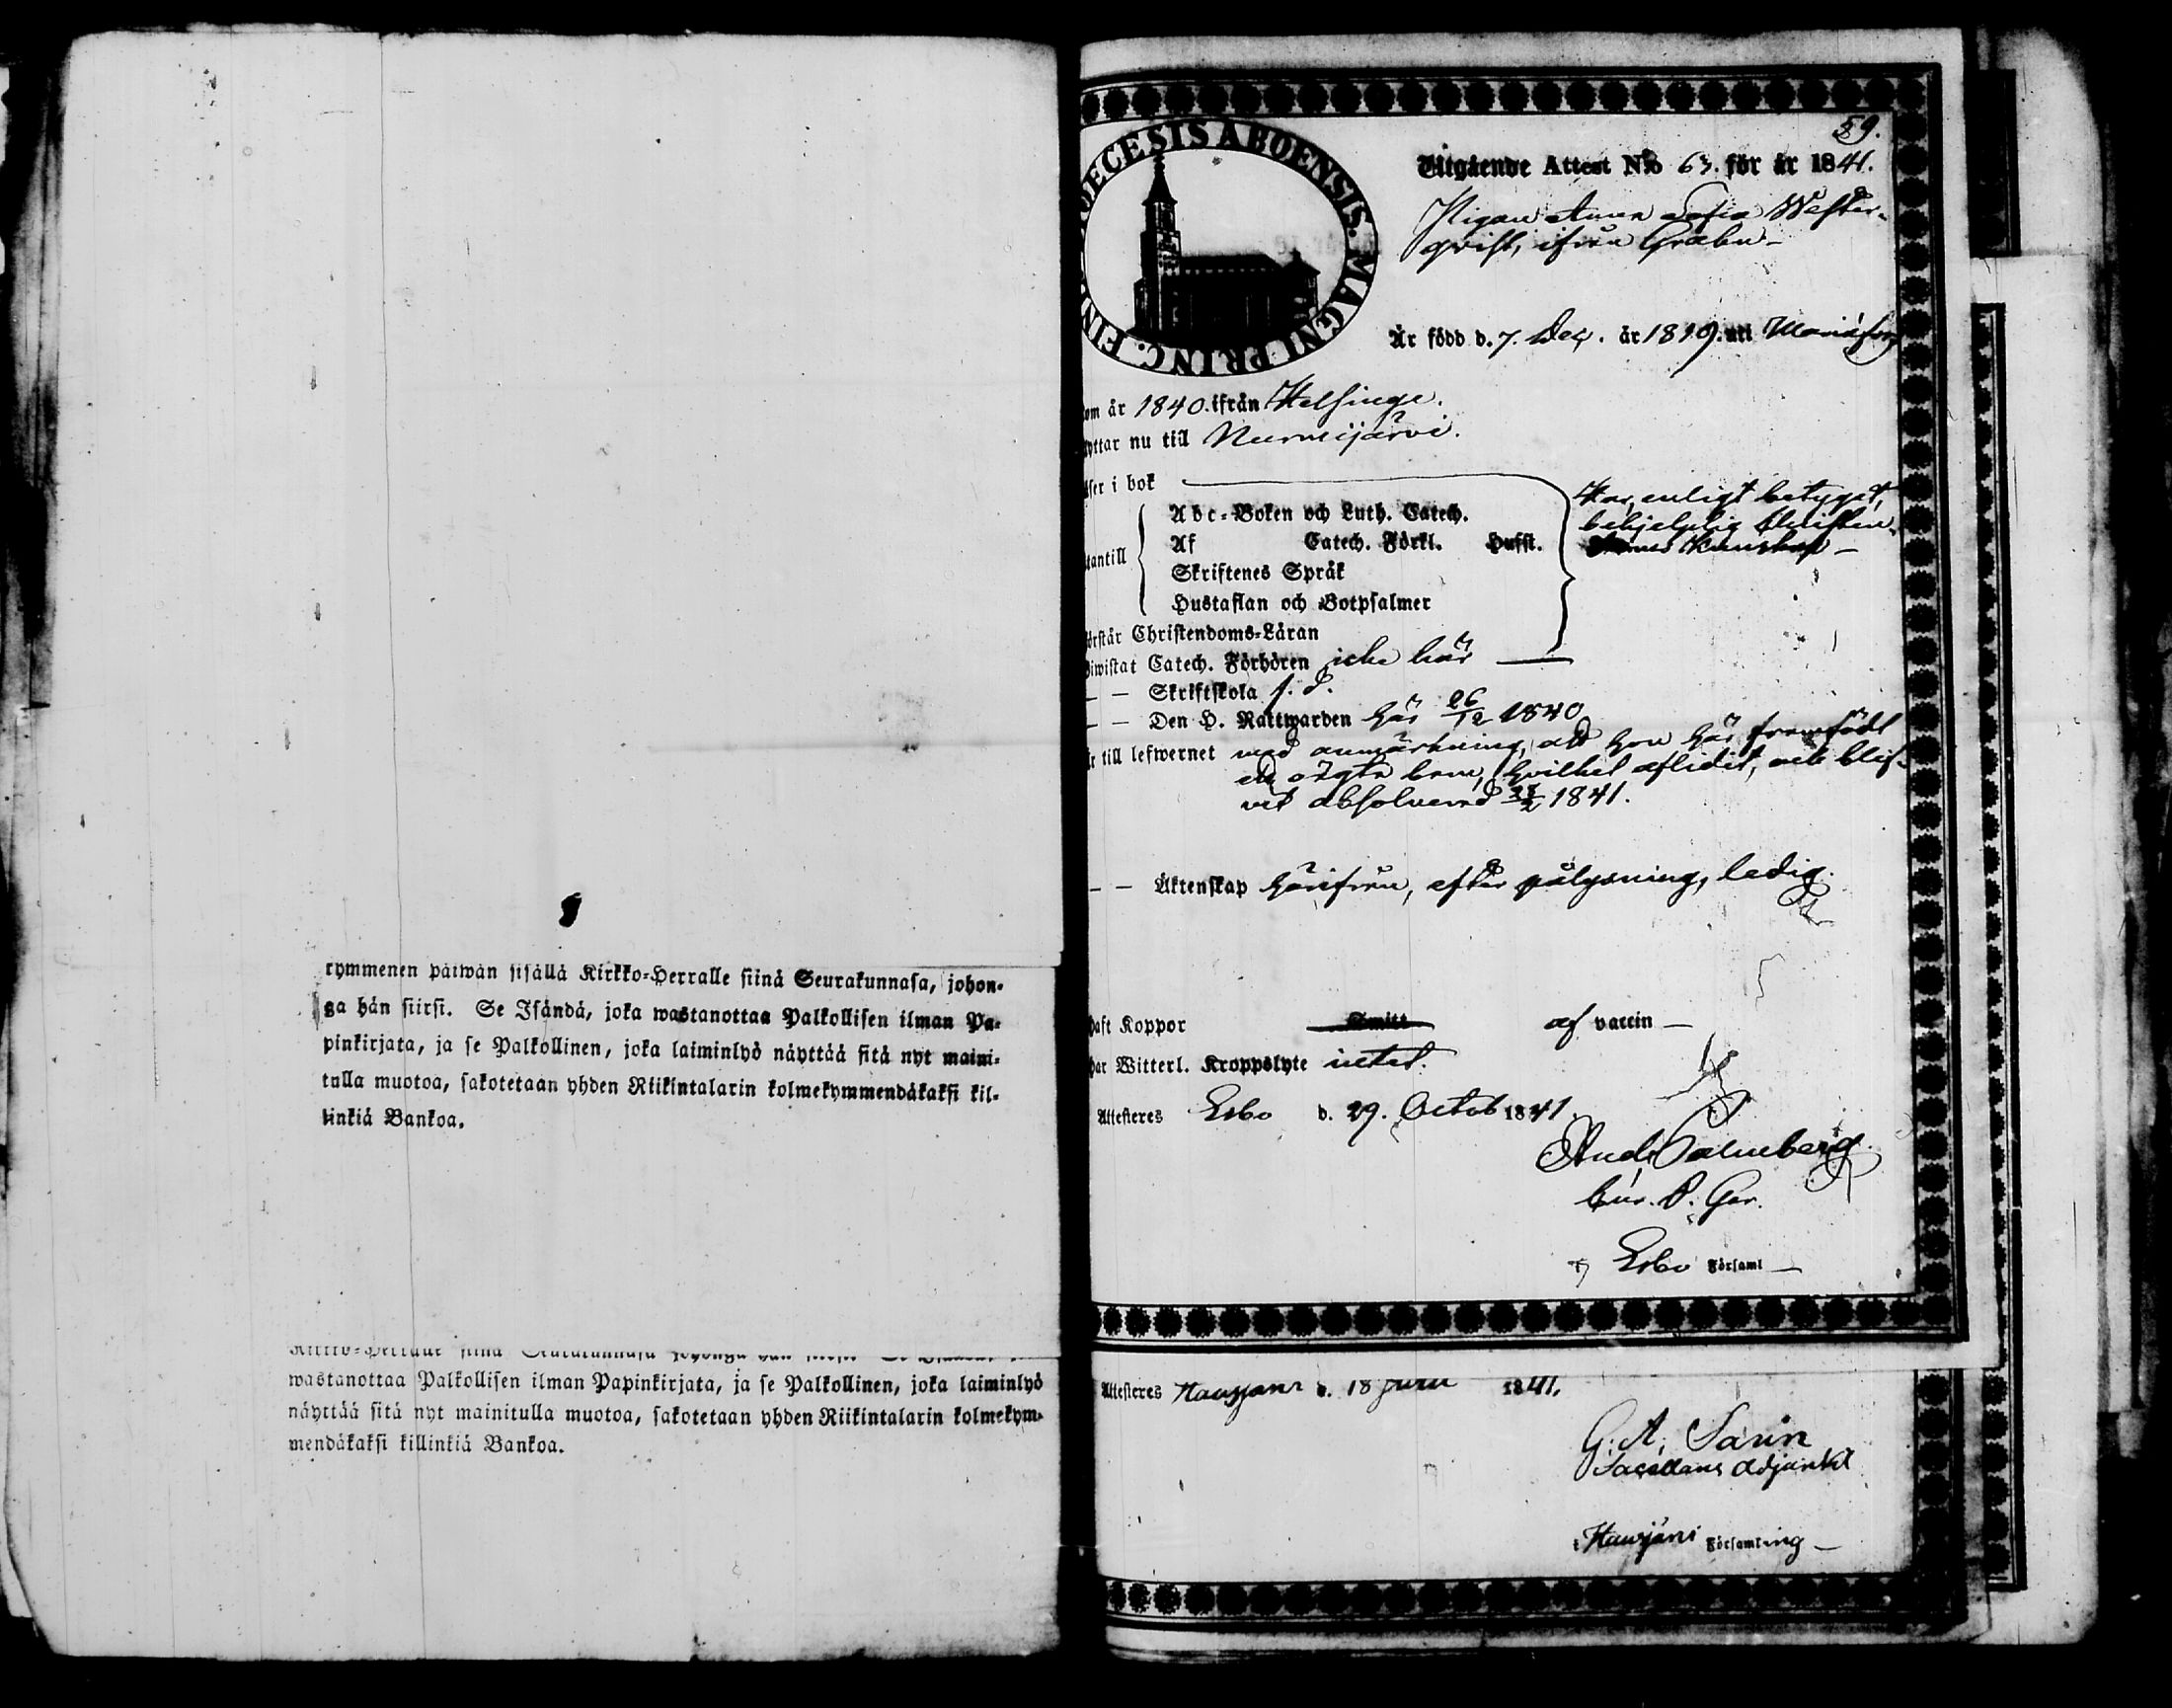 kymmenen päiwän sisällä Kirkko-Herralle siinä Seurakunnasa, johon-
ga hän siirsi. Se Isändä, joka wastanottaa Palkollisen ilman Pa-
pinkirjata, ja se Palkollinen, joka laiminlyö näyttää sitä nyt maini-
tulla muotoa, sakotetaan yhden Riikintalarin kolmekymmendäkaksi kil-
linkiä Bankoa.
wastanottaa Palkollisen ilman Papinkirjata, ja se Palkollinen, joka laiminlyö
näyttää sitä nyt mainitulla muotoa, sakotetaan yhden Riikintalarin kolmekym-
mendäkaksi killinkiä Bankoa.
59.
ECESIS ABOENSIS. MAGNI PRINC. FIN
Utgående Attest No 63. för år 1841.
Pigan Anna Sofia Wester-
qvist, ifrån Gräbn
Är född d. 7. Dec. år 1819. uti
om år 1840. ifrån Helsinge.
yttar nu till Nurmijärvi.
äser i bok
Har, enligt betyget,
Abc-Boken och Luth. Catech.
behjelplig Christen-
Af Catech. Förkl. Husst.
doms kunskap —
tantill
Skriftenes Språk
Hustaflan och Botpsalmer
örstår Christendoms-Läran
Biwistat Catech. Förhören icke här —
— — Skriftskola f. d.
— — Den H. Nattwarden här 26/12 1840
är till lefwernet med anmärkning, att hon här framfödt
ett oägta barn, hvilket aflidit, och blif-
vit absolverad 1841.
— — Äktenskap härifrån, efter pålysning, ledig.
haft Koppor af vaccin —
har Witterl. Kroppslyte intet.
Attesteres Esbo d. 29. Octob 1841.
And. Palmeberg.
Esbo Församl —
Attesteres Hausjärvi d. 18 Juni 1841.
G. A. Sarin
Sacellans Adjunkt
i Hausjärvi Församling —